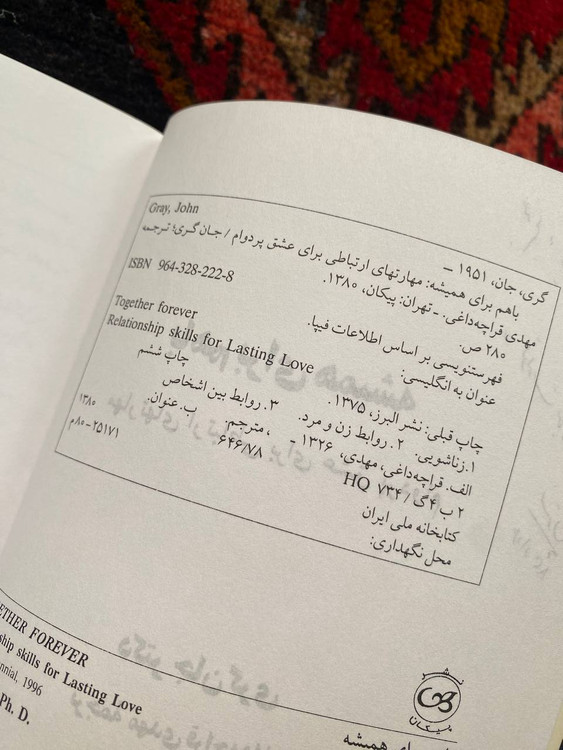 Gray, John
گری، جان، ۱۹۵۱ –
باهم برای همیشه: مهارتهای ارتباطی برای عشق پردوام / جان گری؛ ترجمه
مهدی قراچه‌داغی. – تهران: پیکان، ۱۳۸۰.
۲۸۰ ص.
ISBN 964-328-222-8
فهرستنویسی بر اساس اطلاعات فیپا.
عنوان به انگلیسی:
Together forever
Relationship skills for Lasting Love
چاپ قبلی: نشر البرز، ۱۳۷۵.
چاپ ششم
۱. زناشویی. ۲. روابط زن و مرد. ۳. روابط بین اشخاص
الف. قراچه‌داغی، مهدی، ۱۳۲۶ – ، مترجم. ب. عنوان.
۲ ب ۴ گ / ۷۳۴ HQ ۶۴۶/۷۸ ۱۳۸۰
کتابخانه ملی ایران ۲۵۱۷۱–۸۰م
محل نگهداری:
ETHER FOREVER
ship skills for Lasting Love
nnial, 1996
Ph. D.
نشر
پیکان
همیشه